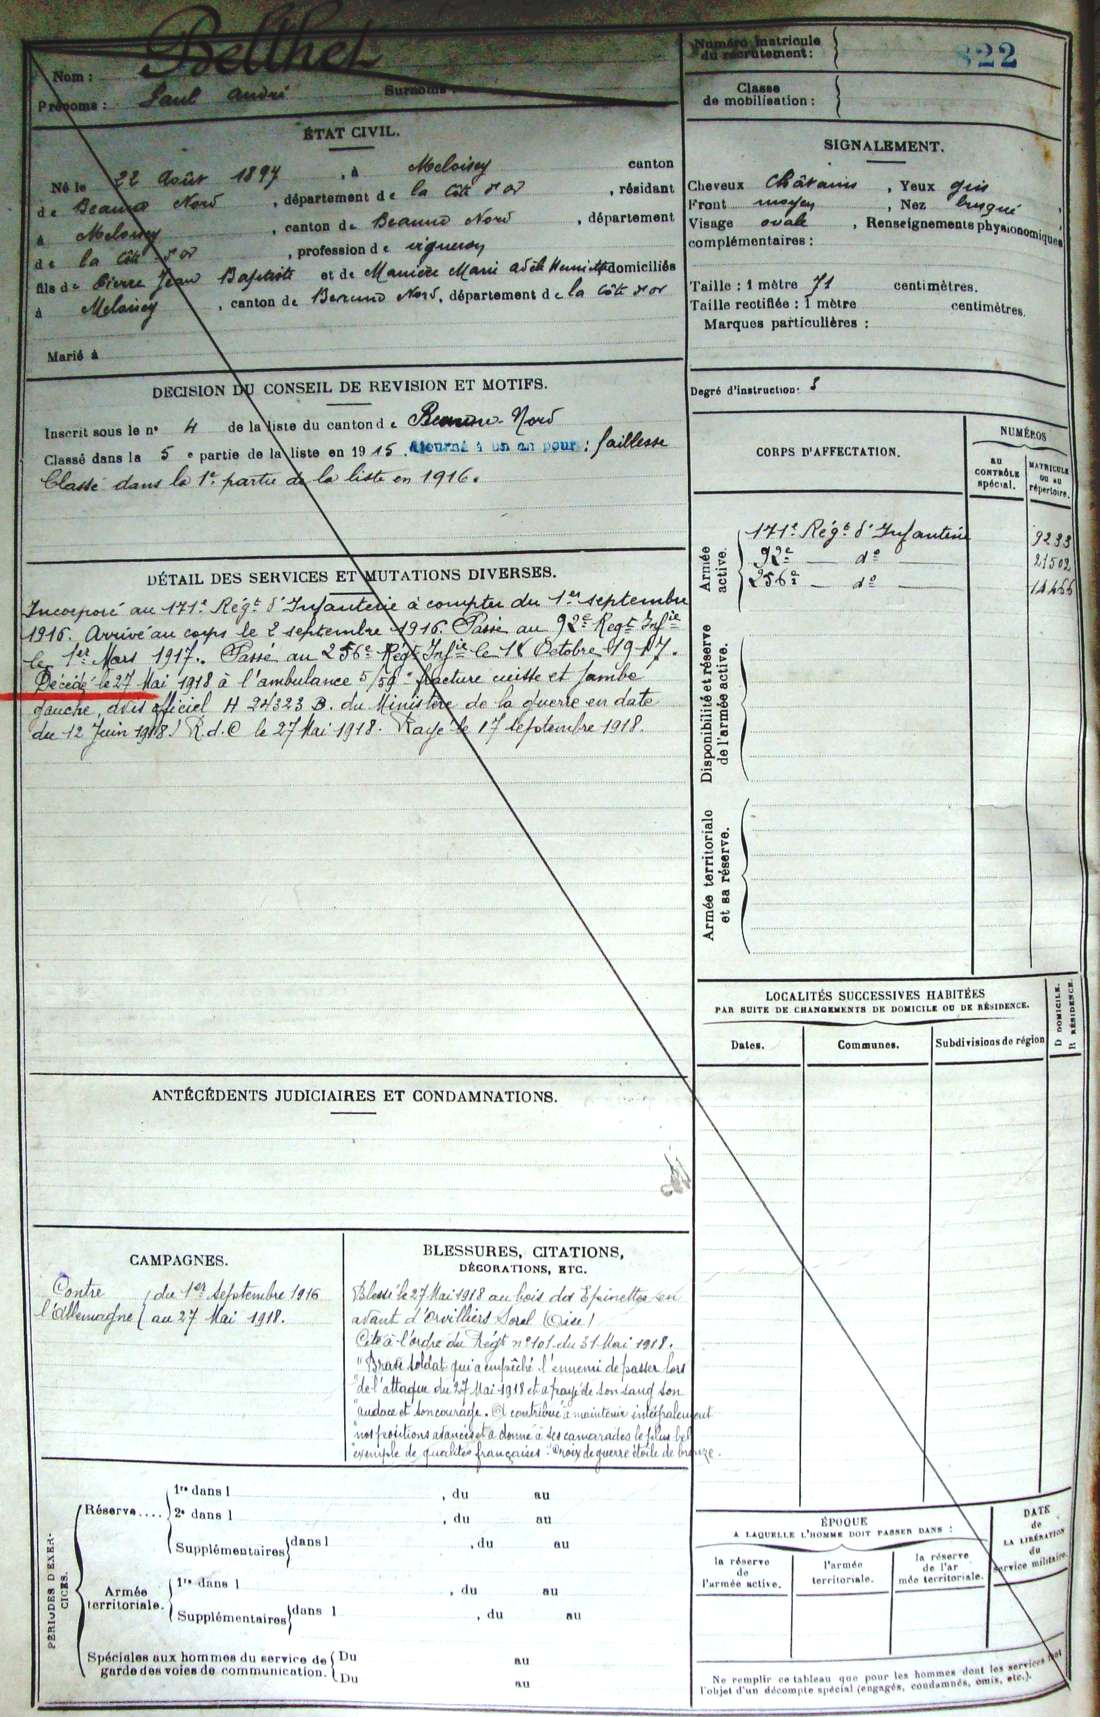 Nom : Belthet
Prénoms : Paul André Surnoms :
ÉTAT CIVIL.
Né le 22 Août 1897, à Meloisey canton
de Beaune Nord, département de la Côte d'Or, résidant
à Meloisey, canton de Beaune Nord, département
de la Côte d'Or, profession de vigneron
fils de Pierre Jean Baptiste et de Manière Marie Adèle Henriette domiciliés
à Meloisey, canton de Beaune Nord, département de la Côte d'Or
Marié à
DECISION DU CONSEIL DE REVISION ET MOTIFS.
Inscrit sous le n° 4 de la liste du canton de Beaune-Nord
Classé dans la 5e partie de la liste en 1915. Ajourné à un an pour : faiblesse
Classé dans la 1e partie de la liste en 1916.
DÉTAIL DES SERVICES ET MUTATIONS DIVERSES.
Incorporé au 171e Régt d'Infanterie à compter du 1er septembre
1916. Arrivé au corps le 2 septembre 1916. Passé au 92e Régt Infie
le 1er Mars 1917. Passé au 256e Régt Infie le 11 Octobre 1917.
Décédé le 27 Mai 1918 à l'ambulance 5/59 "fracture cuisse et jambe
gauche, avis officiel H 24323 B. du Ministère de la guerre en date
du 12 Juin 1918) R.d.C le 27 Mai 1918. Rayé le 17 septembre 1918.
ANTÉCÉDENTS JUDICIAIRES ET CONDAMNATIONS.
CAMPAGNES.
Contre l'Allemagne { du 1er Septembre 1916
au 27 Mai 1918.
BLESSURES, CITATIONS,
DÉCORATIONS, ETC.
Blessé le 27 Mai 1918 au bois des Epinettes en
avant d'Orvilliers Sorel (Oise)
Cité à l'ordre du Régt n° 101 du 31 Mai 1918.
"Brave soldat qui a empêché l'ennemi de passer lors
"de l'attaque du 27 Mai 1918 et a payé de son sang son
"audace et son courage. A contribué à maintenir intégralement
"nos positions avancées et a donné à ses camarades le plus bel
"exemple de qualités françaises". Croix de guerre étoile de bronze.
PÉRIODES D'EXERCICES.
Réserve....
1re dans l , du au
2e dans l , du au
Supplémentaires dans l , du au
Armée territoriale.
1re dans l , du au
Supplémentaires dans l , du au
Spéciales aux hommes du service de garde des voies de communication.
Du au
Du au
Numéro matricule du recrutement : 822
Classe de mobilisation :
SIGNALEMENT.
Cheveux Châtains, Yeux gris
Front moyen, Nez busqué,
Visage ovale, Renseignements physionomiques
complémentaires :
Taille : 1 mètre 71 centimètres.
Taille rectifiée : 1 mètre centimètres.
Marques particulières :
Degré d'instruction : 3
CORPS D'AFFECTATION.
NUMÉROS
AU CONTRÔLE spécial.
MATRICULE OU AU répertoire.
Armée active.
171e Régt d'Infanterie 9233
92e — do — 21502
256e — do — 14466
Disponibilité et réserve de l'armée active.
Armée territoriale et sa réserve.
LOCALITÉS SUCCESSIVES HABITÉES
PAR SUITE DE CHANGEMENTS DE DOMICILE OU DE RÉSIDENCE.
Dates. Communes. Subdivisions de région
D DOMICILE.
R RÉSIDENCE.
ÉPOQUE
A LAQUELLE L'HOMME DOIT PASSER DANS :
la réserve de l'armée active.
l'armée territoriale.
la réserve de l'armée territoriale.
DATE de LA LIBÉRATION du service militaire.
Ne remplir ce tableau que pour les hommes dont les services font
l'objet d'un décompte spécial (engagés, condamnés, omis, etc.).